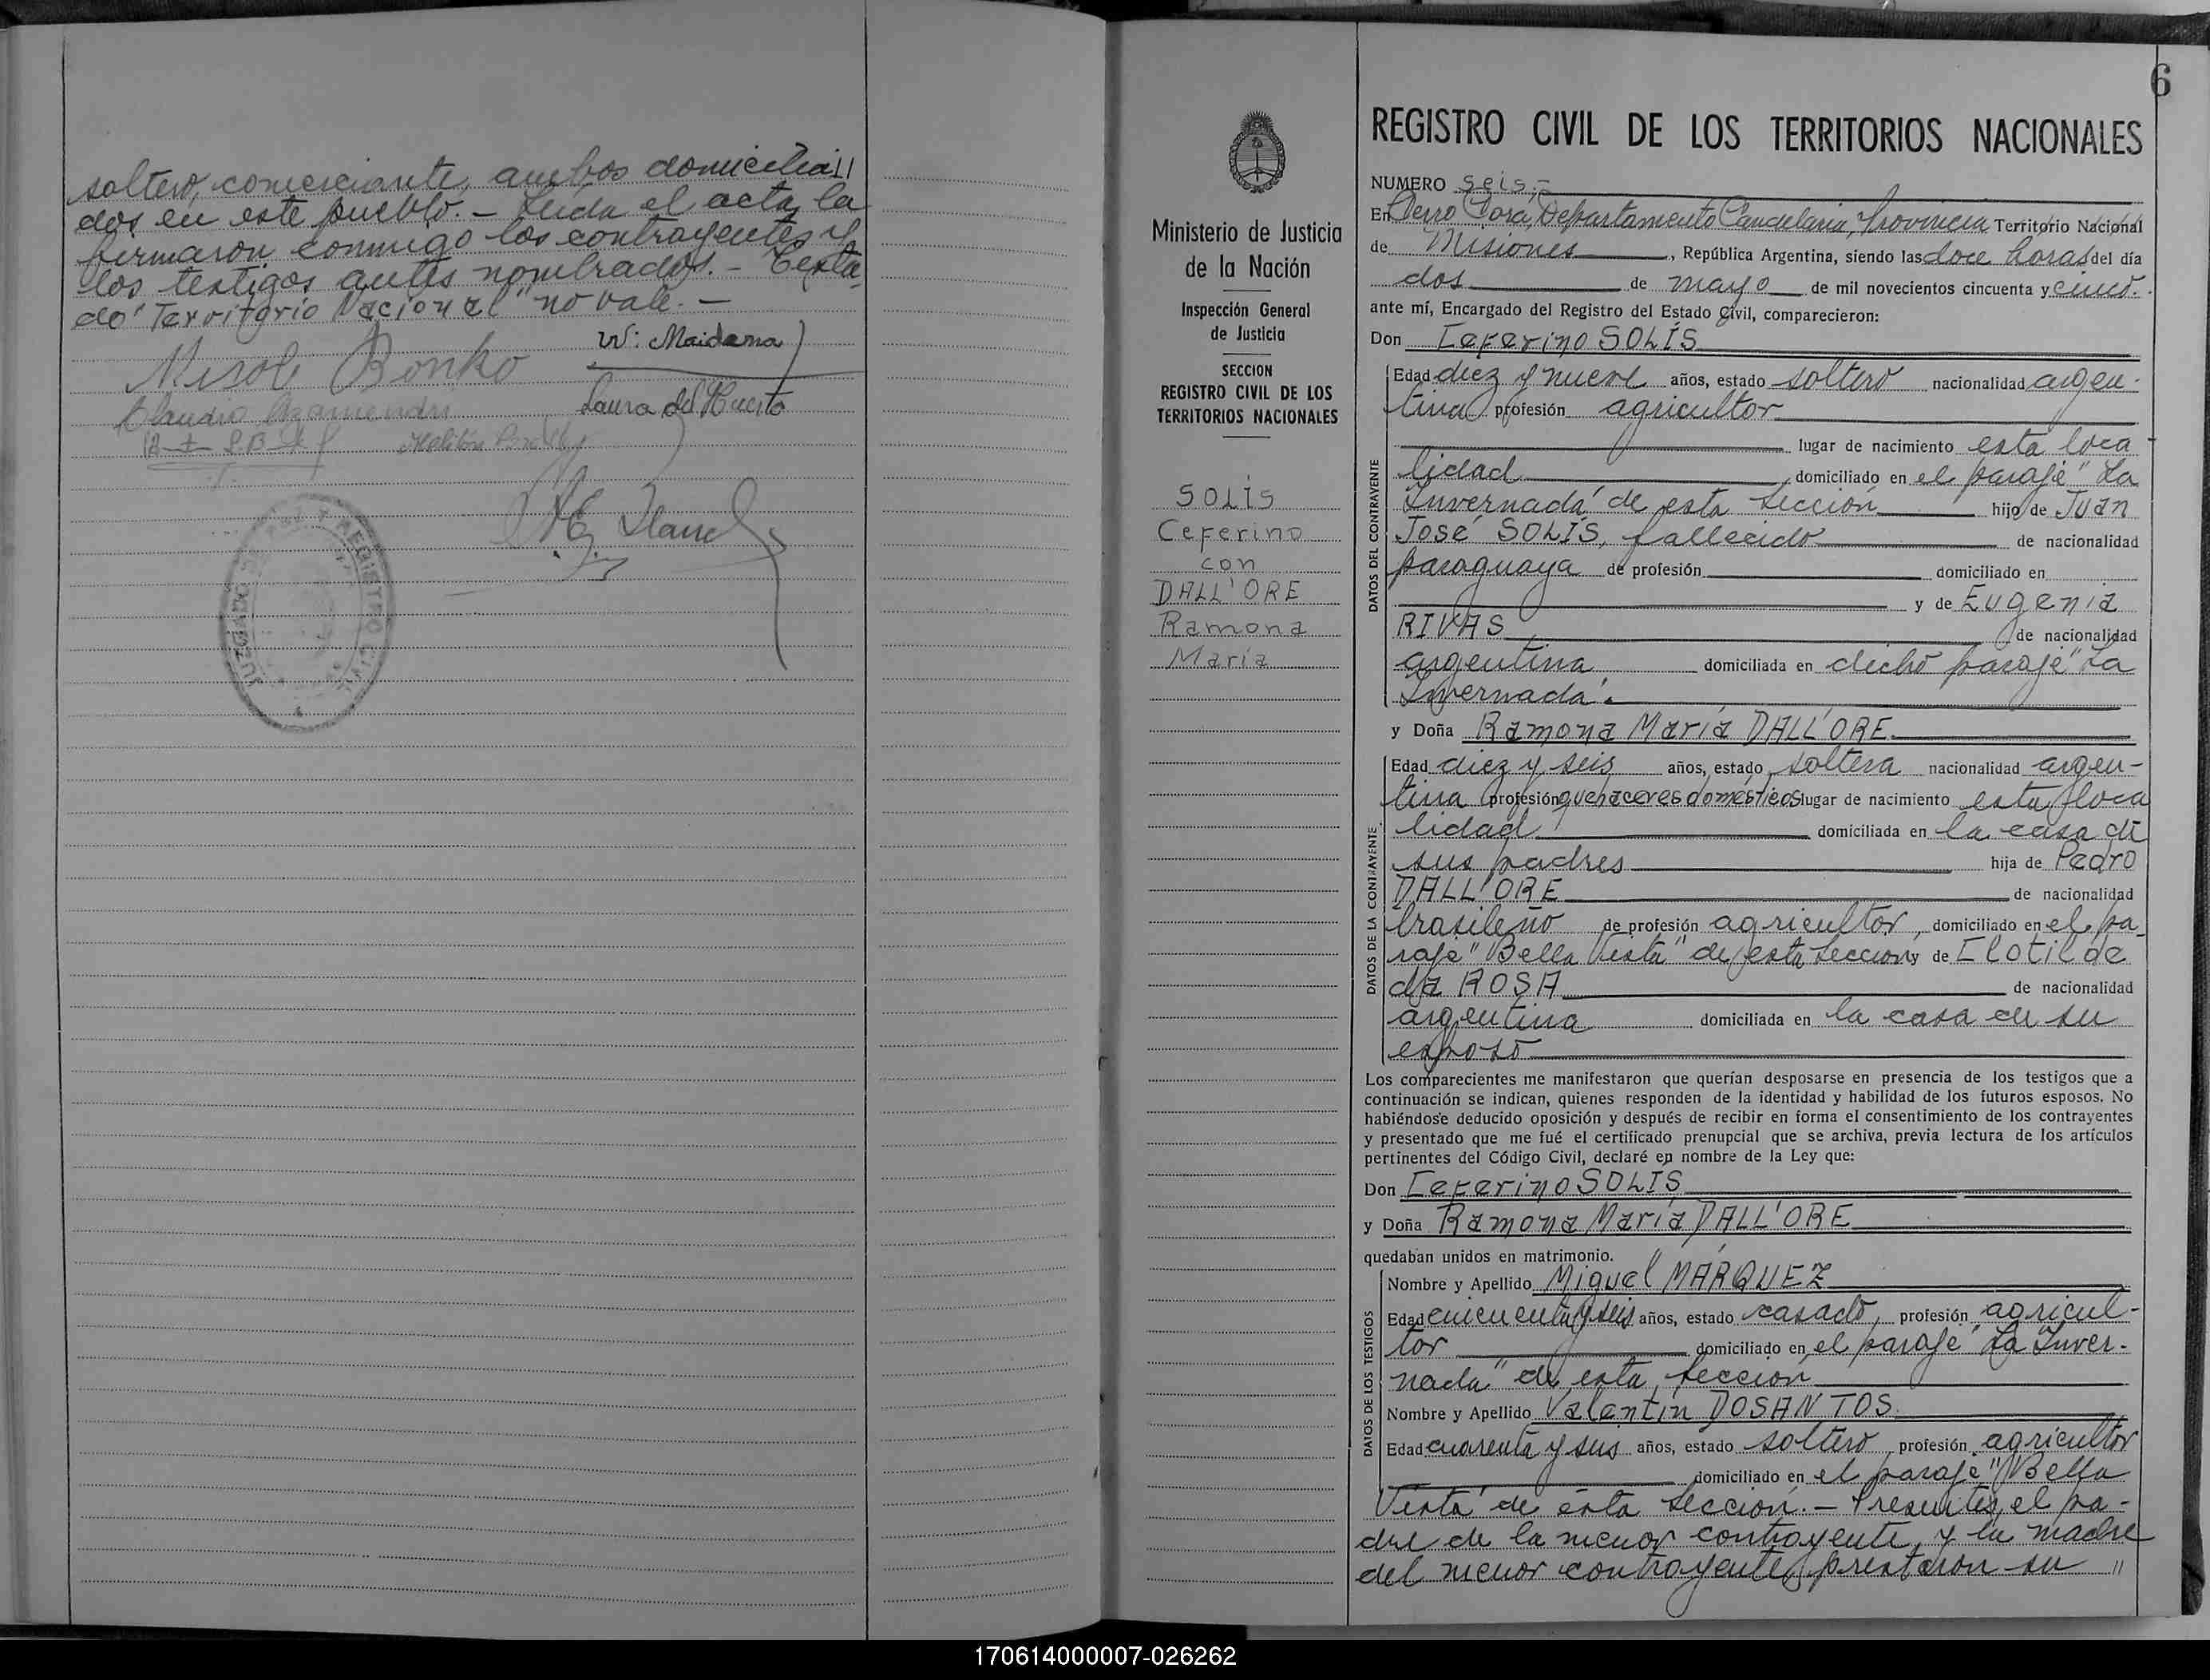 soltero, comerciante, ambos domicilia//
dos en este pueblo. - Leida el acta, la
firmaron conmigo los contrayentes y
los testigos antes nombrados. - Testa-
do "Territorio Nacional" no vale. -
W: Maidana
Bonko
Laura del Huerto
Claudio
JUZGADO DE PAZ Y REGISTRO CIVIL
6
Ministerio de Justicia
de la Nación
Inspección General
de Justicia
SECCION
REGISTRO CIVIL DE LOS
TERRITORIOS NACIONALES
SOLÍS
Ceferino
con
DALL'ORE
Ramona
María
REGISTRO CIVIL DE LOS TERRITORIOS NACIONALES
NUMERO seis.-
En Cerro Corá, Departamento Candelaria, Provincia Territorio Nacional
de Misiones, República Argentina, siendo las doce horas del día
dos de mayo de mil novecientos cincuenta y cinco.
ante mí, Encargado del Registro del Estado Civil, comparecieron:
Don Ceferino SOLÍS
DATOS DEL CONTRAYENTE
Edad diez y nueve años, estado soltero nacionalidad argen-
tina profesión agricultor
lugar de nacimiento esta loca-
lidad domiciliado en el paraje "La
Invernada" de esta sección hijo de Juan
José SOLÍS, fallecido de nacionalidad
paraguaya de profesión domiciliado en
y de Eugenia
RIVAS de nacionalidad
argentina domiciliada en dicho paraje "La
Invernada".
y Doña Ramona María DALL'ORE.
DATOS DE LA CONTRAYENTE
Edad diez y seis años, estado soltera nacionalidad argen-
tina profesión quehaceres domésticos lugar de nacimiento esta loca
lidad domiciliada en la casa de
sus padres hija de Pedro
DALL'ORE de nacionalidad
brasileño de profesión agricultor, domiciliado en el pa-
raje "Bella Vista" de esta sección y de Clotilde
da ROSA de nacionalidad
argentina domiciliada en la casa de su
esposo
Los comparecientes me manifestaron que querían desposarse en presencia de los testigos que a
continuación se indican, quienes responden de la identidad y habilidad de los futuros esposos. No
habiéndose deducido oposición y después de recibir en forma el consentimiento de los contrayentes
y presentado que me fué el certificado prenupcial que se archiva, previa lectura de los artículos
pertinentes del Código Civil, declaré en nombre de la Ley que:
Don Ceferino SOLÍS
y Doña Ramona María DALL'ORE
quedaban unidos en matrimonio.
DATOS DE LOS TESTIGOS
Nombre y Apellido Miguel MÁRQUEZ
Edad cincuenta y seis años, estado casado, profesión agricul-
tor domiciliado en el paraje "La Inver-
nada" de esta sección
Nombre y Apellido Valentín DOSANTOS
Edad cuarenta y seis años, estado soltero profesión agricultor
domiciliado en el paraje "Bella
Vista" de esta sección. - Presentes el pa-
dre de la menor contrayente y la madre
del menor contrayente, prestaron su //
170614000007-026262